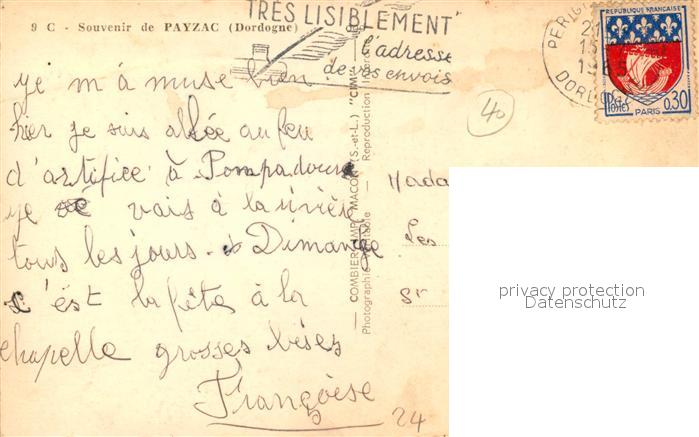 9 C - Souvenir de PAYZAC (Dordogne)
TRÈS LISIBLEMENT
l'adresse
de vos envois
PERIG
1965
DORDOGNE
REPUBLIQUE FRANÇAISE
POSTES
0,30
PARIS
40
ye m à muse bien
hier je suis allée au feu
d'artifice à Pompadour
ye vais à la rivière
tous les jours. Dimange
c'ést la fête à la
chapelle grosses bises
Françoise
24
COMBIER IMP. MACON (S.-et-L.) "CIM"
Photographie véritable - Reproduction
Mada
Les
St
privacy protection
Datenschutz